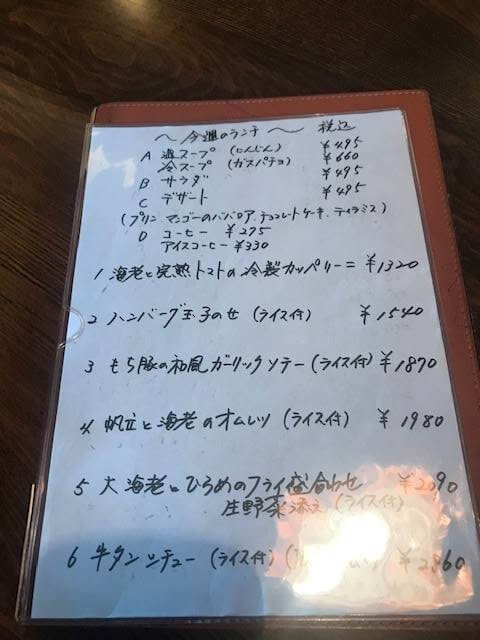 ～ 今週のランチ ～ 税込
A 温スープ (にんじん) ¥495
冷スープ (ガスパチョ) ¥660
B サラダ ¥495
C デザート ¥495
(プリン、マンゴーのババロア、チョコレートケーキ、ティラミス)
D コーヒー ¥275
アイスコーヒー ¥330
1 海老と完熟トマトの冷製カッペリーニ ¥1320
2 ハンバーグ玉子のせ (ライス付) ¥1540
3 もち豚の和風ガーリックソテー (ライス付) ¥1870
4 帆立と海老のオムレツ (ライス付) ¥1980
5 大海老とひらめのフライ盛合わせ ¥2090
生野菜添え (ライス付)
6 牛タンシチュー (ライス付) ¥2860